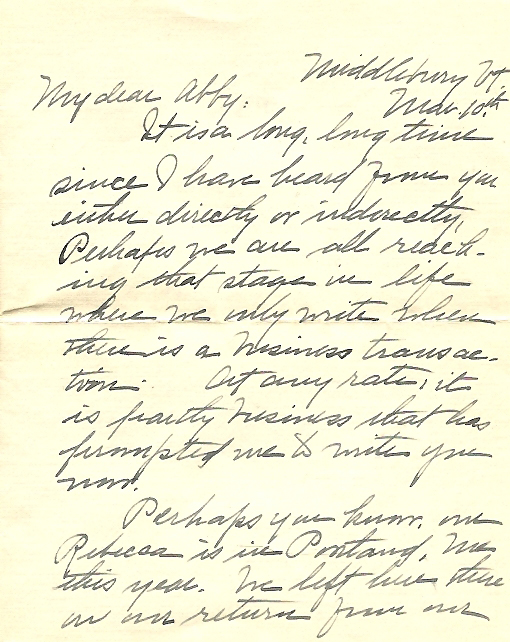 Middlebury Vt.
Mar. 10th
My dear Abby:
It is a long, long time
since I have heard from you
either directly or indirectly.
Perhaps we are all reach-
ing that stage in life
where we only write when
there is a business transac-
tion. At any rate, it
is partly business that has
prompted me to write you
now.
Perhaps you know, our
Rebecca is in Portland, Me
this year. We left her there
on our return from our